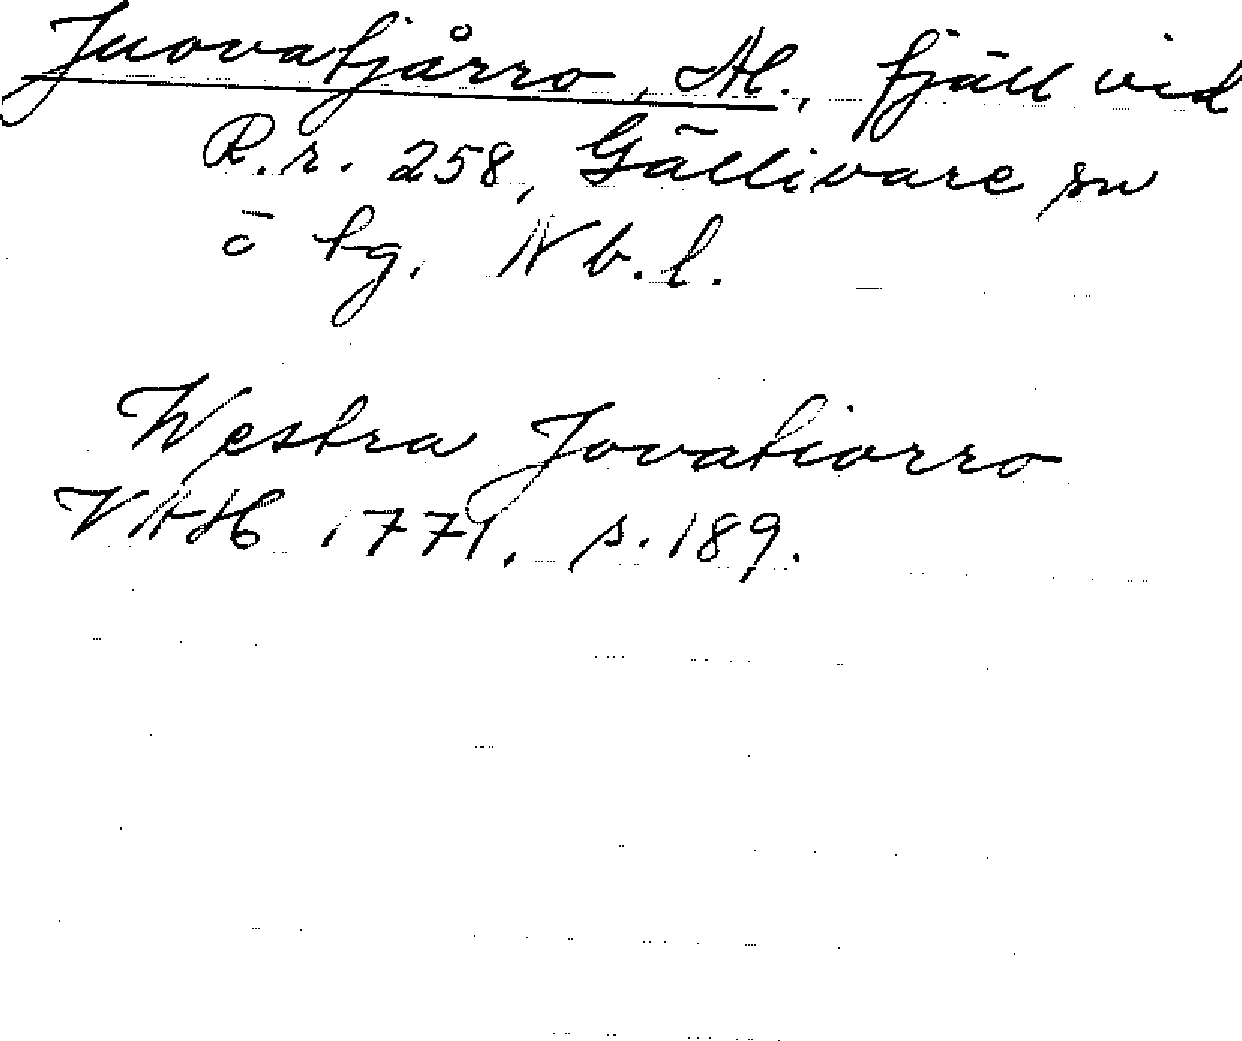 Juovatjårro, St., fjäll vid
R.r. 258, Gällivare sn
o tg. Nb.l.
Westra Jovatiorro
VAH 1771, s. 189.